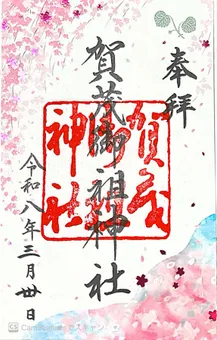 奉拝
賀茂御祖神社
賀茂
御祖
神社
令和八年三月廿日